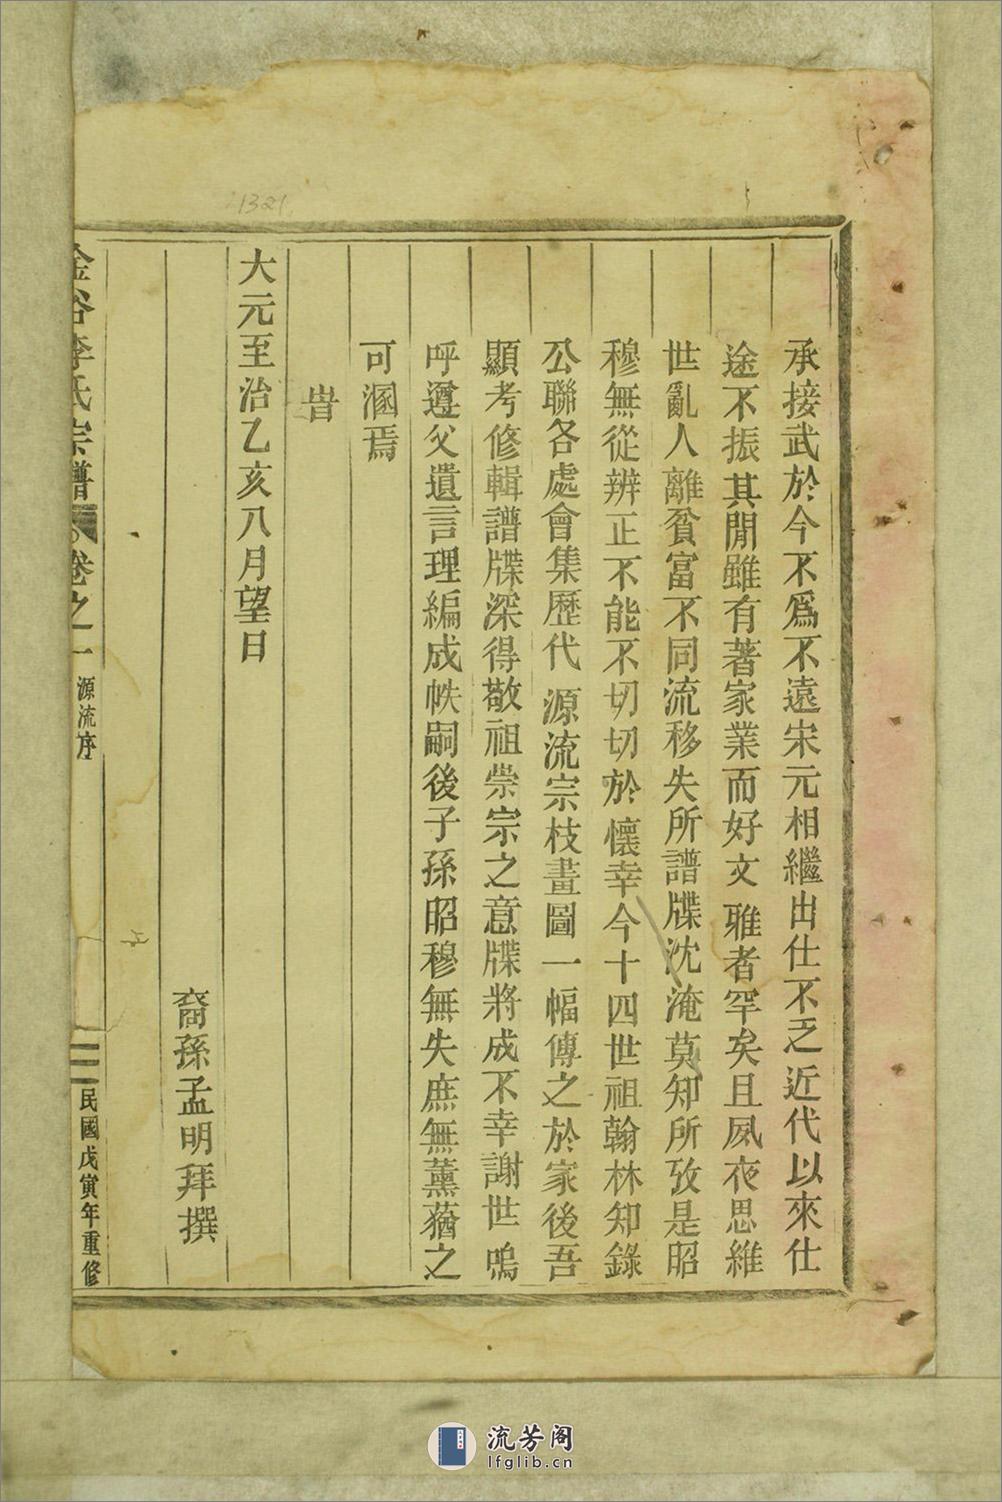 承接武於今不爲不遠宋元相繼出仕不乏近代以來仕
途不振其閒雖有著家業而好文雅者罕矣且夙夜思維
世亂人離貧富不同流移失所譜牒沈淹莫知所攷是昭
穆無從辨正不能不切切於懷幸今十四世祖翰林知錄
公聯各處會集歷代源流宗枝畫圖一幅傳之於家後吾
顯考修輯譜牒深得敬祖崇宗之意牒將成不幸謝世嗚
呼遵父遺言理編成帙嗣後子孫昭穆無失庶無薰蕕之
可溷焉
旹
大元至治乙亥八月望日
裔孫孟明拜撰
金谷李氏宗譜 卷之一 源流序 民國戊寅年重修
1321
流芳阁
lfglib.cn